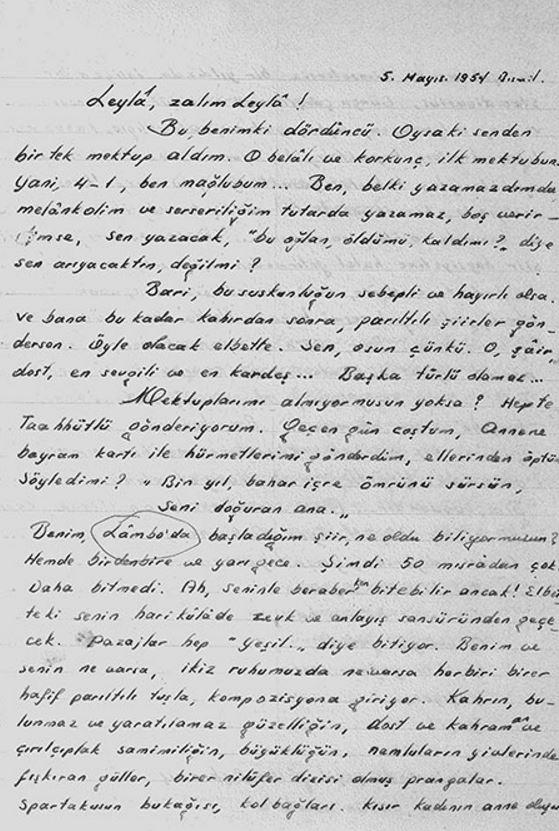 5. Mayıs. 1954
Leylâ, zalim Leylâ !
Bu benimki dördüncü. Oysaki senden
bir tek mektup aldım. O belâlı ve korkunç, ilk mektubun.
Yani, 4-1, ben mağlubum... Ben, belki yazamazdımda
melânkolim ve serseriliğim tutarda yazamaz, boş verir-
dimse, sen yazacak, "bu oğlan, öldümü kaldımı?" diye
sen arıyacaktın, değilmi ?
Bari, bu suskunluğun sebepli ve hayırlı olsa.
ve bana bu kadar kahırdan sonra, parıltılı şiirler gön-
dersen. Öyle olacak elbette. Sen, osun çünkü. O, şâir,
dost, en sevgili ve en kardeş... Başka türlü olamaz...
Mektuplarımı almıyormusun yoksa ? Hepte
Taahhütlü gönderiyorum. Geçen gün coştum, Annene
bayram kartı ile hürmetlerimi gönderdim, ellerinden öptü
Söyledimi ? "Bin yıl, bahar içre ömrünü sürsün,
Seni doğuran ana."
Benim, Lâmbo'da başladığım şiir, ne oldu biliyormusun?
Hemde birdenbire ve yarı gece. Şimdi 50 mısradan çok.
Daha bitmedi. Ah, seninle beraberken bitebilir ancak! Elbet
teki senin harikülâde zevk ve anlayış sansüründen geçe
cek. Pazajlar hep "Yeşil.." diye bitiyor. Benim ve
senin ne varsa, ikiz ruhumuzda ne varsa herbiri birer
hafif parıltılı tuşla, kompozisyona giriyor. Kahrın, bu-
lunmaz ve yaratılamaz güzelliğin, dost ve kahraman ve
çırılçıplak samimiliğin, büyüklüğün, namluların yivlerinde
fışkıran güller, birer nilüfer dizisi olmuş prangalar.
Spartaküsun bukağısı, kol bağları. Kısır kadının anne oluşu